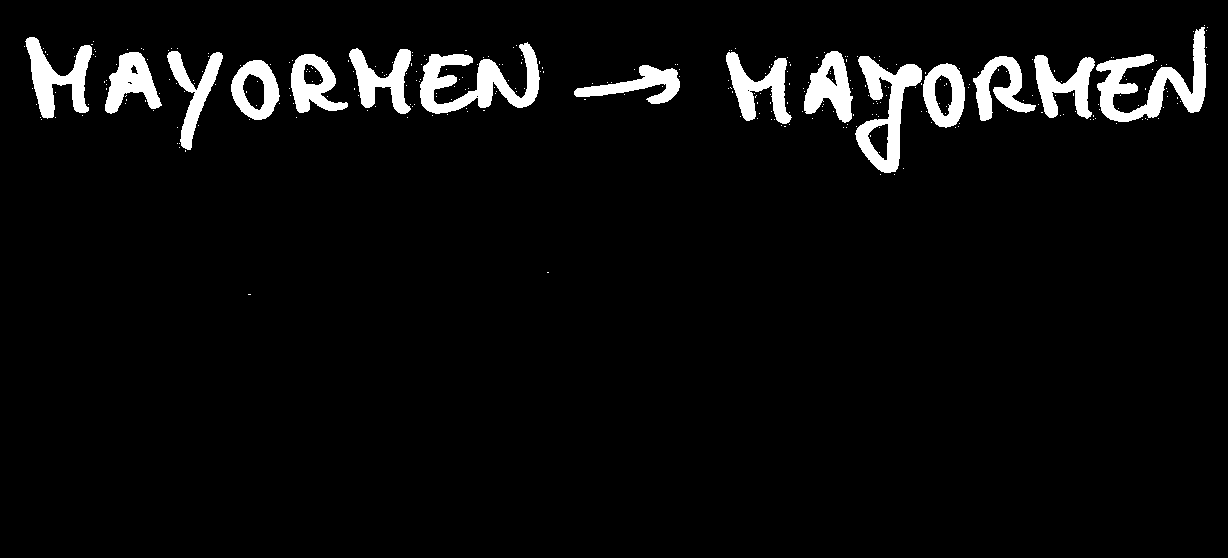 MAYORMEN → MAJORMEN